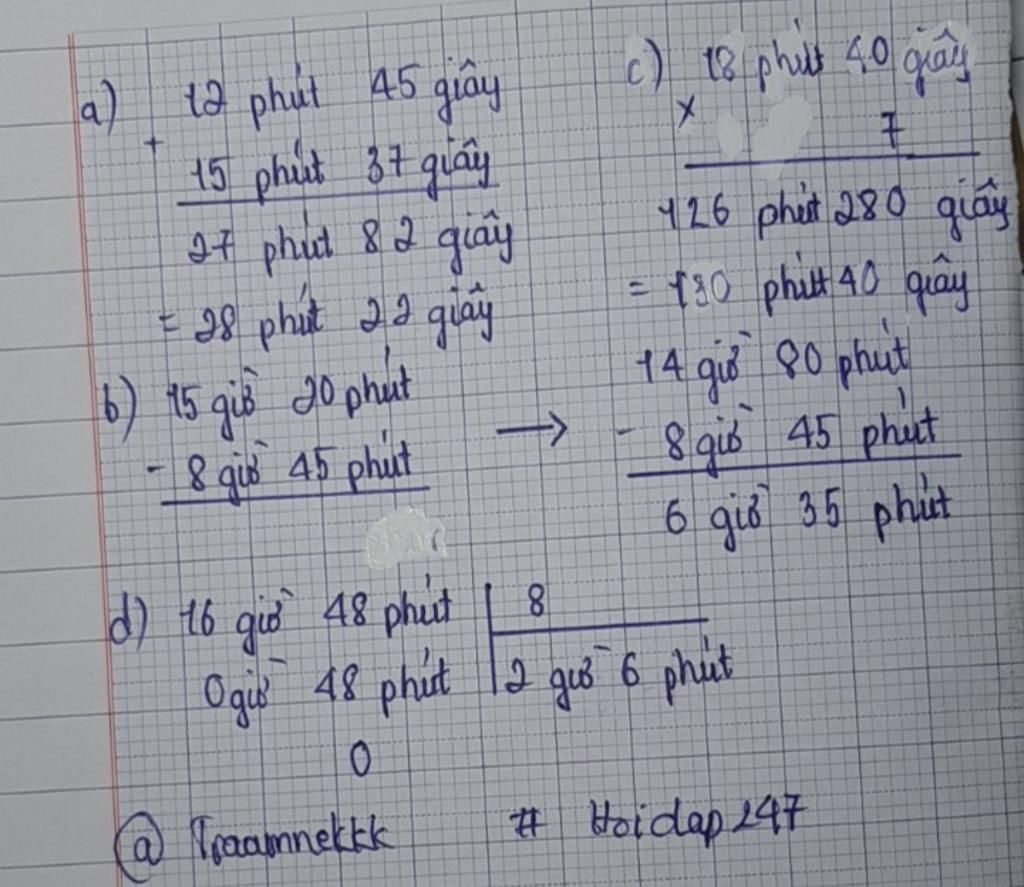 a) 12 phút 45 giây
+
15 phút 37 giây
27 phút 82 giây
= 28 phút 22 giây
c) 18 phút 40 giây
x
7
126 phút 280 giây
= 130 phút 40 giây
b) 15 giờ 20 phút
- 8 giờ 45 phút
→
14 giờ 80 phút
- 8 giờ 45 phút
6 giờ 35 phút
d) 16 giờ 48 phút | 8
0 giờ 48 phút | 2 giờ 6 phút
0
@ Traamnekkk # Hoidap247